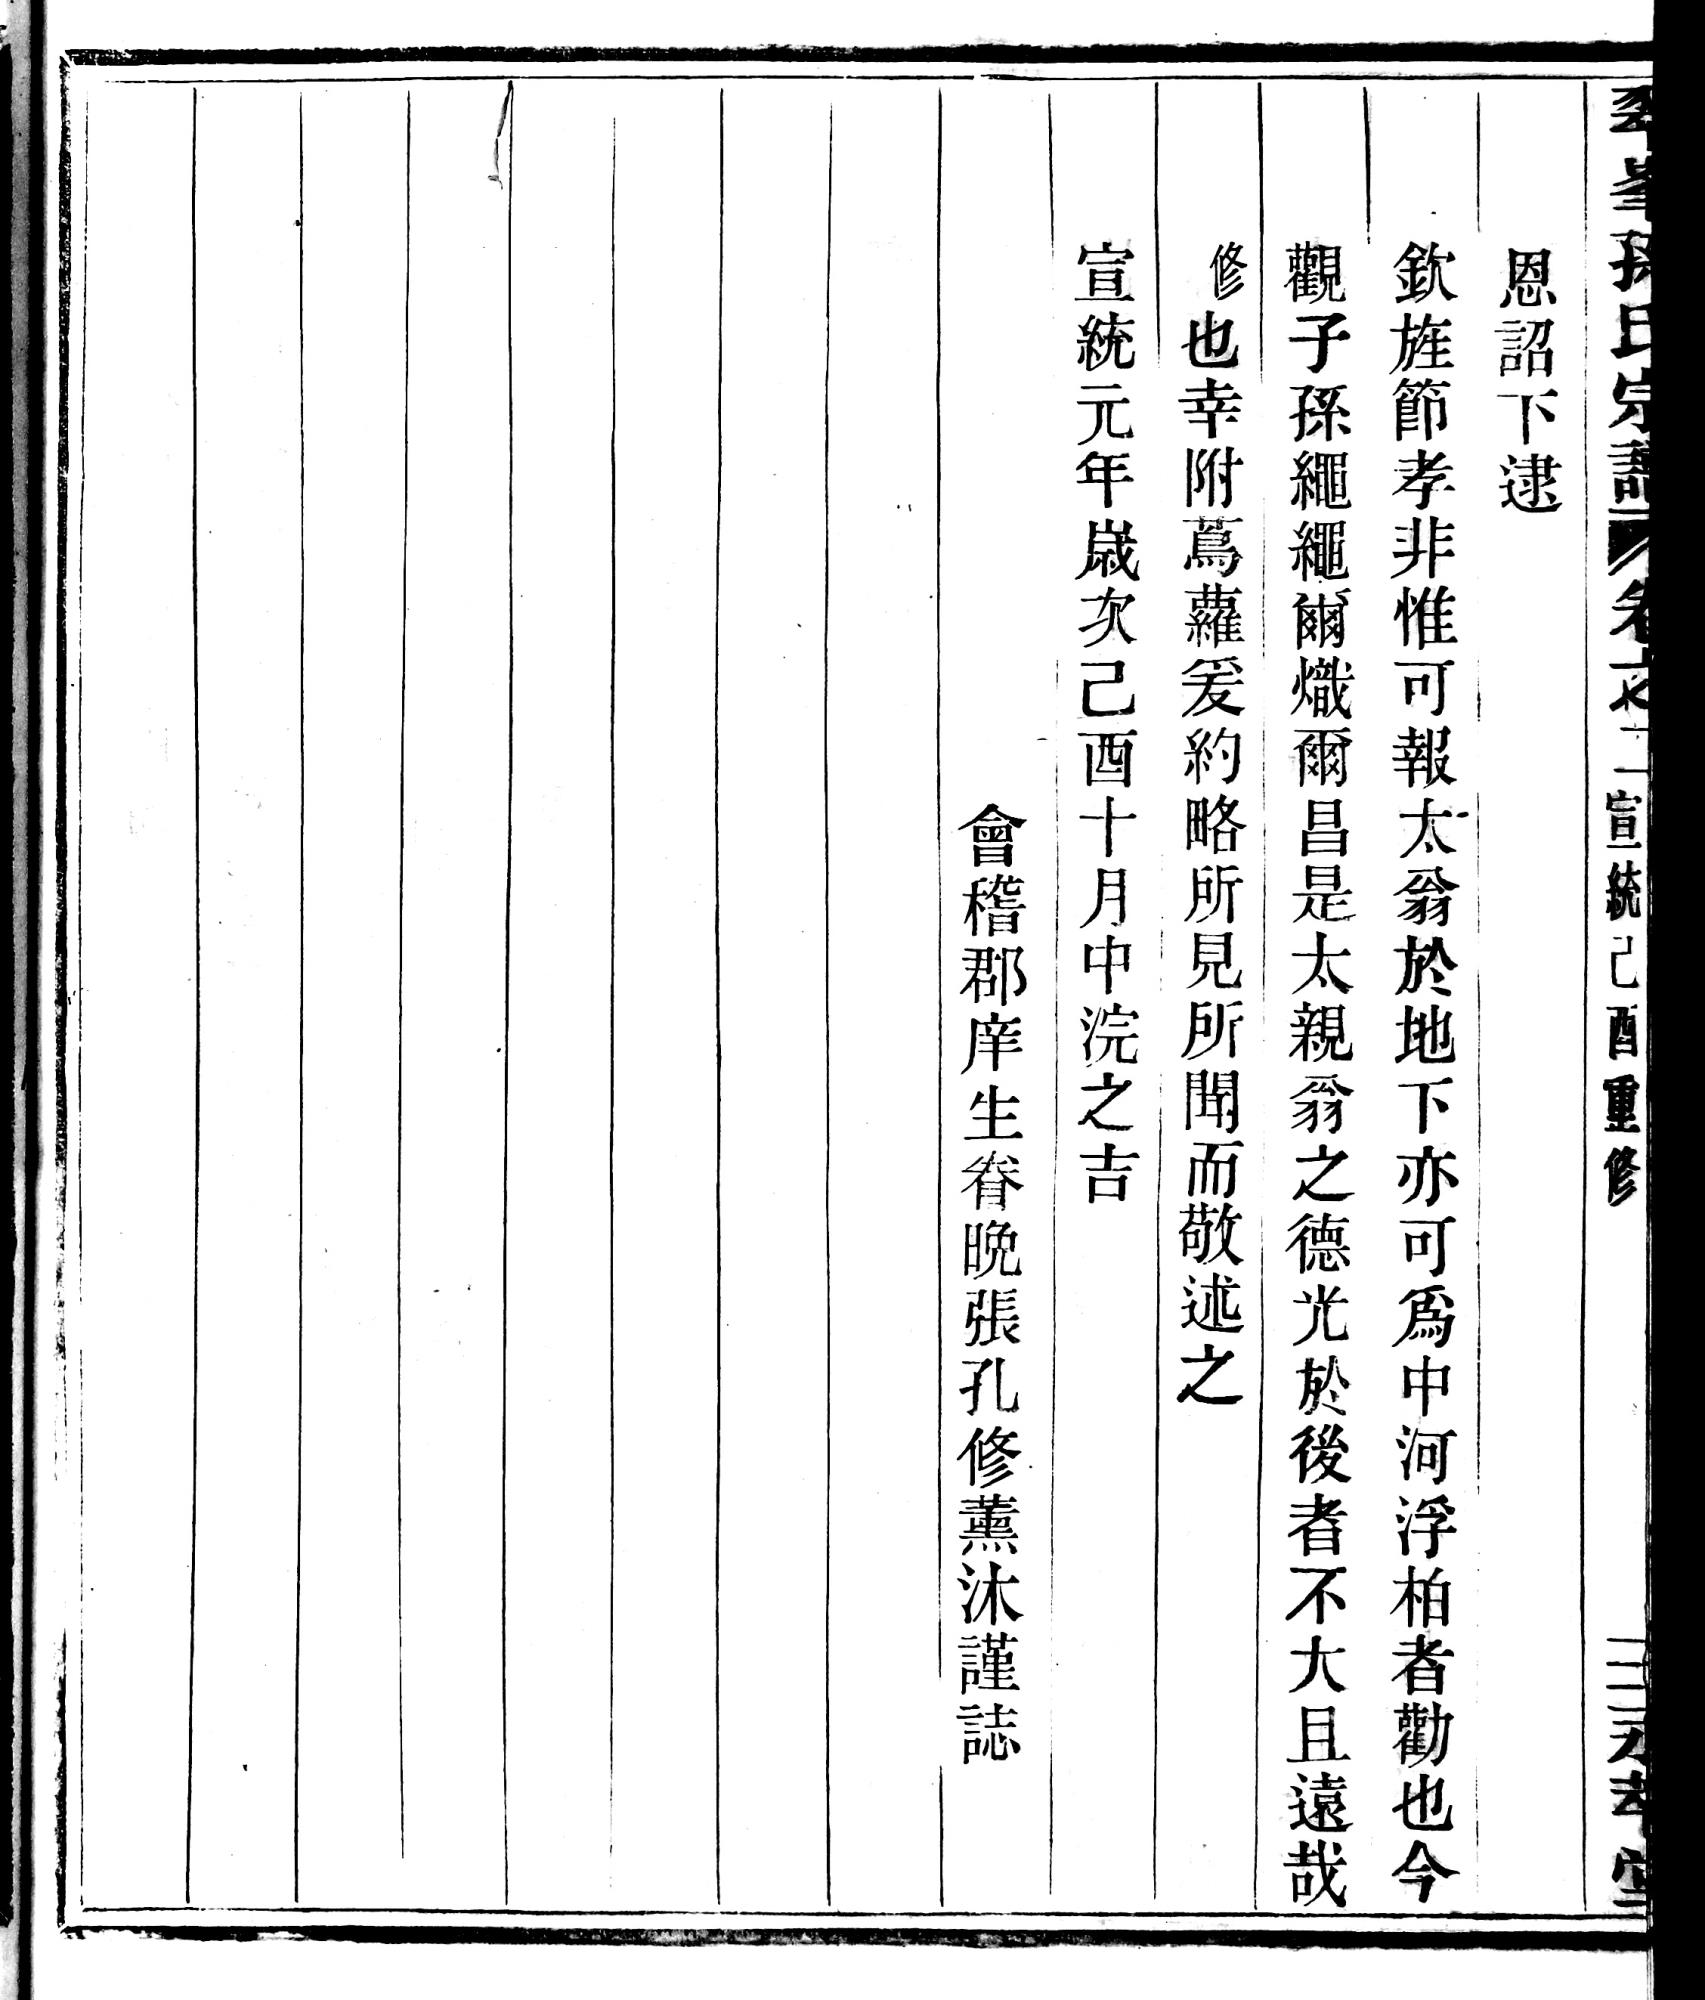 峯孫氏宗譜 卷之二 宣統己酉重修 三 永孝堂
恩詔下逮
欽旌節孝非惟可報太翁於地下亦可爲中河浮柏者勸也今
觀子孫繩繩爾熾爾昌是太親翁之德光於後者不大且遠哉
修也幸附蔦蘿爰約略所見所聞而敬述之
宣統元年歲次己酉十月中浣之吉
會稽郡庠生眷晚張孔修薰沐謹誌